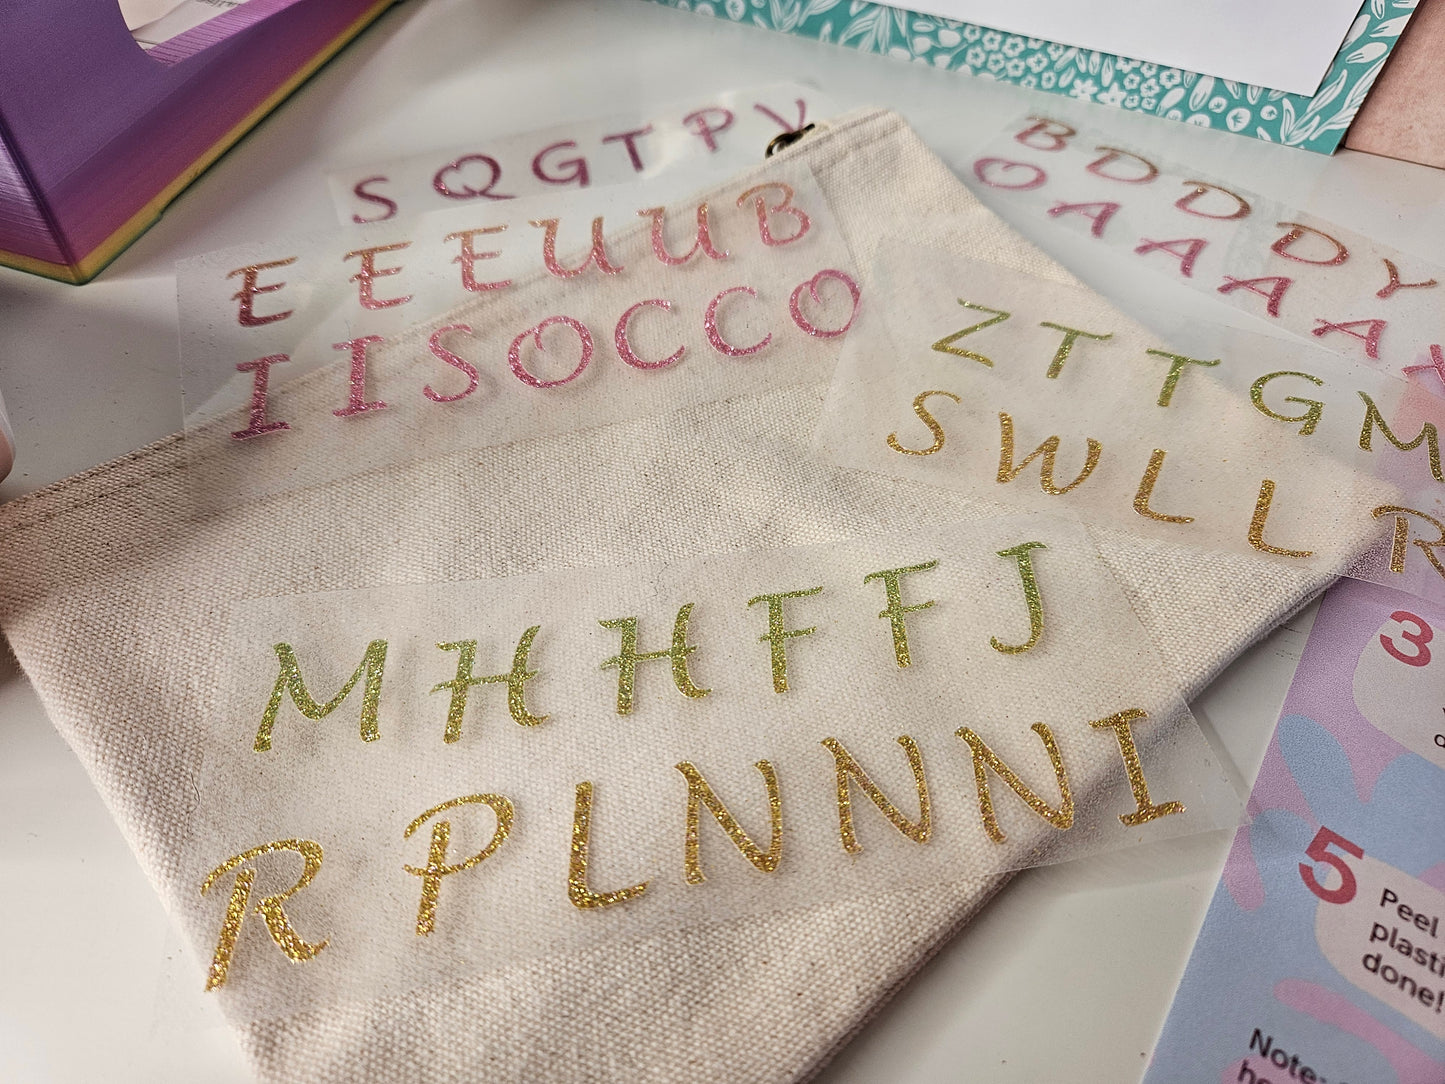 S Q G T P V
E E E U U B
I I S O C C O
B D D D Y
O A A A A
Z T T G M
S W L L R
M H H F F J
R P L N N N I
3
5
Peel
plasti
done!
Note